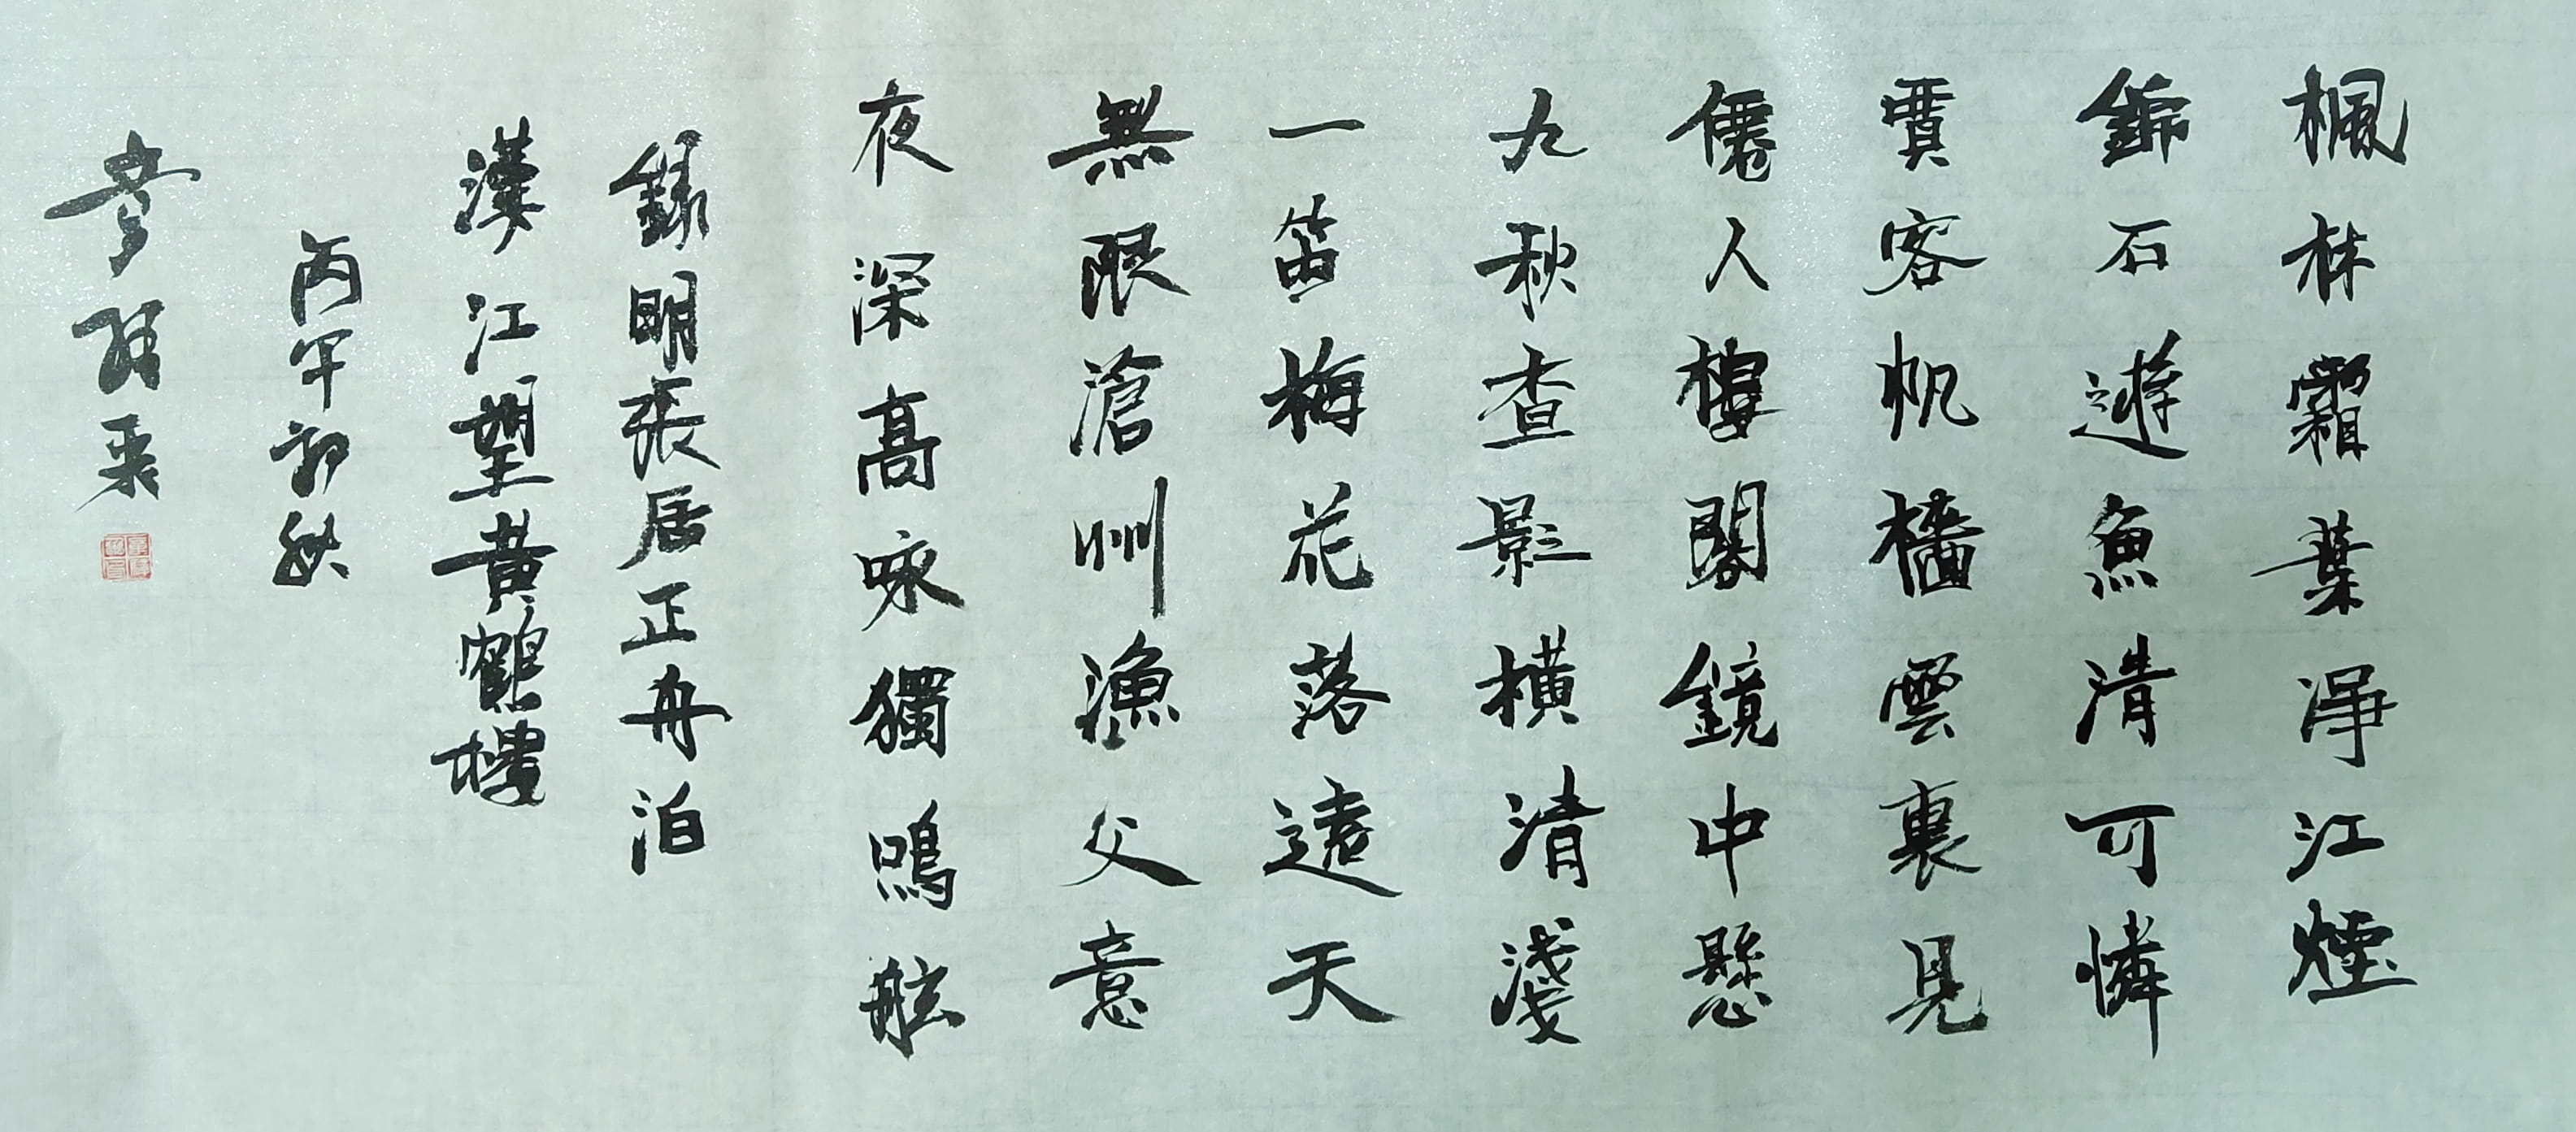 楓林霜葉淨江煙
錦石遊魚清可憐
賈客帆檣雲裏見
僊人樓閣鏡中懸
九秋查影橫清淺
一笛梅花落遠天
無限滄洲漁父意
夜深高咏獨鳴舷
錄明張居正舟泊
漢江望黃鶴樓
丙午初秋